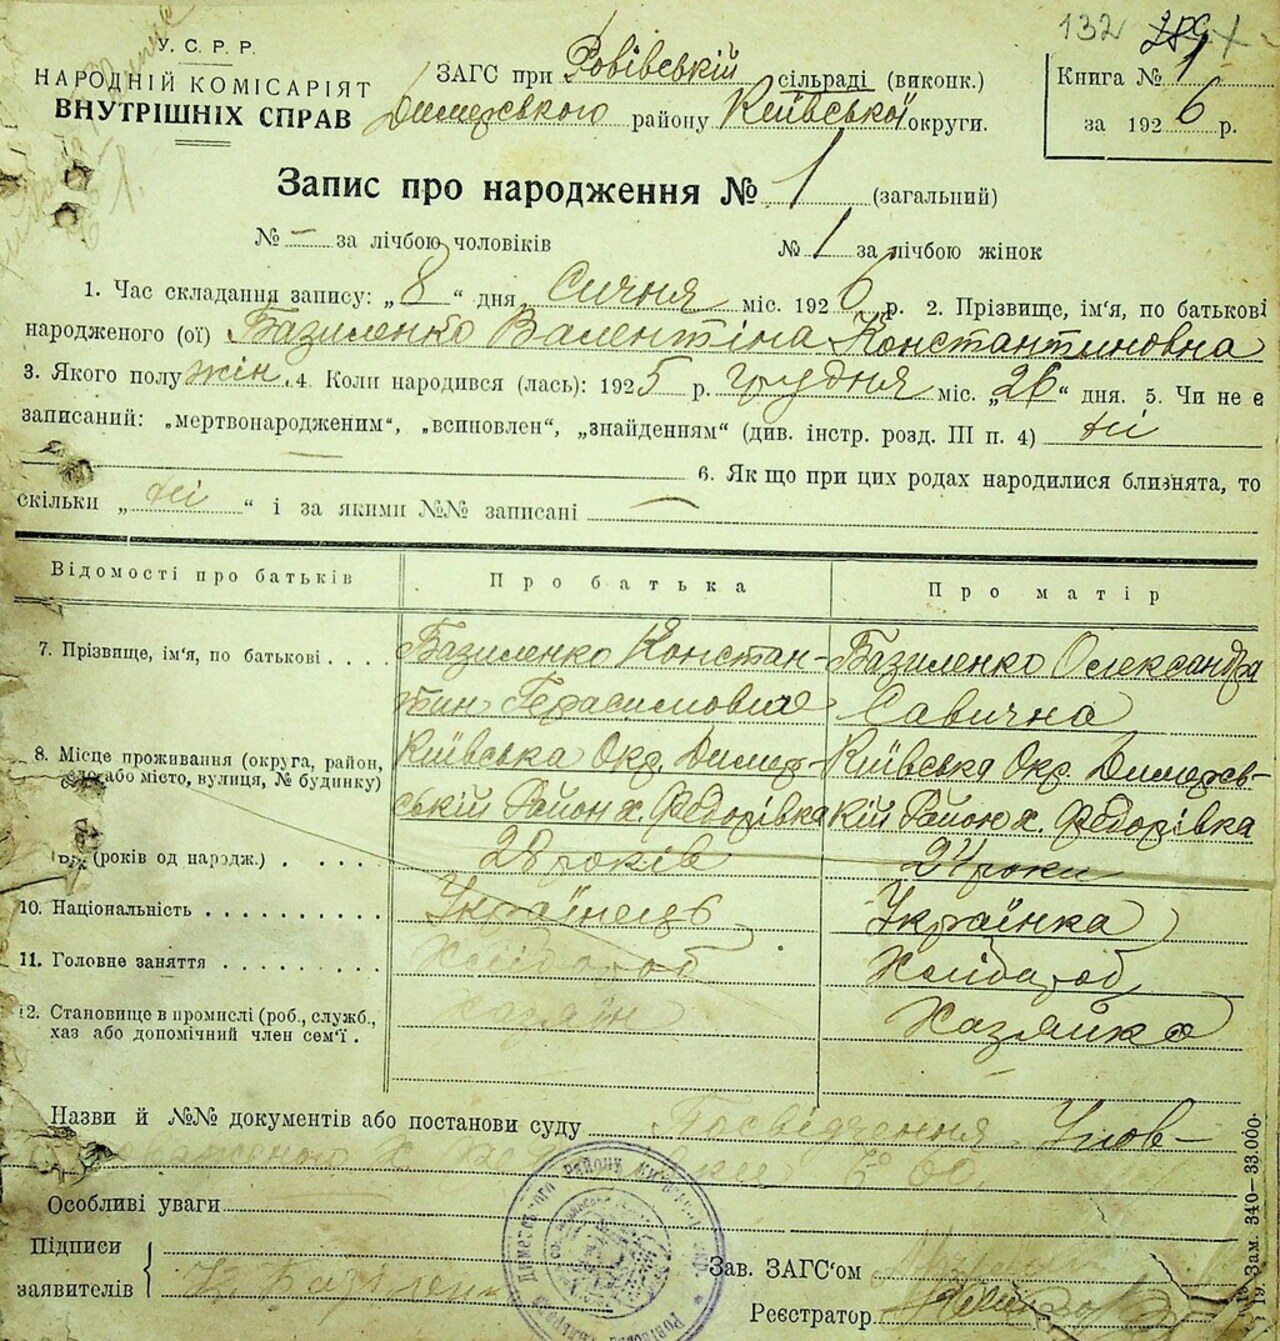 132
У. С. Р. Р.
НАРОДНІЙ КОМІСАРІЯТ
ВНУТРІШНІХ СПРАВ
ЗАГС при Ровівській сільраді (виконк.)
Димерського району Київської округи.
Книга № 1
за 1926 р.
Запис про народження № 1 (загальний)
№ – за лічбою чоловіків № 1 за лічбою жінок
1. Час складання запису: „8“ дня Січня міс. 1926 р. 2. Прізвище, ім'я, по батькові
народженого (ої) Базиленко Валентіна Константиновна
3. Якого полу жін. 4. Коли народився (лась): 1925 р. грудня міс. „26“ дня. 5. Чи не є
записаний: „мертвонародженим“, „всиновлен“, „знайденням“ (див. інстр. розд. III п. 4) ні
6. Як що при цих родах народилися близнята, то
скільки „ні“ і за якими №№ записані —
Відомості про батьків Про батька Про матір
7. Прізвище, ім'я, по батькові . . . . Базиленко Констан- Базиленко Олександра
тин Герасимович Савична
8. Місце проживання (округа, район, Київська Окр. Димер- Київська Окр. Димерсь-
село або місто, вулиця, № будинку) ській Район х. Федорівка кій Район х. Федорівка
(років од народж.) . . . . 28 років 24 роки
10. Національність . . . . . . . . . . . Українець Українка
11. Головне заняття . . . . . . . . . . Хлібороб Хлібороб
12. Становище в промислі (роб., служб., хазяїн Хазяйка
хаз або допомічний член сем'ї .
Назви й №№ документів або постанови суду Посвідчення Упов-
Особливі уваги
Підписи
заявителів К. Базилен
Зав. ЗАГС'ом
Реєстратор
Зам. 340—33.000.